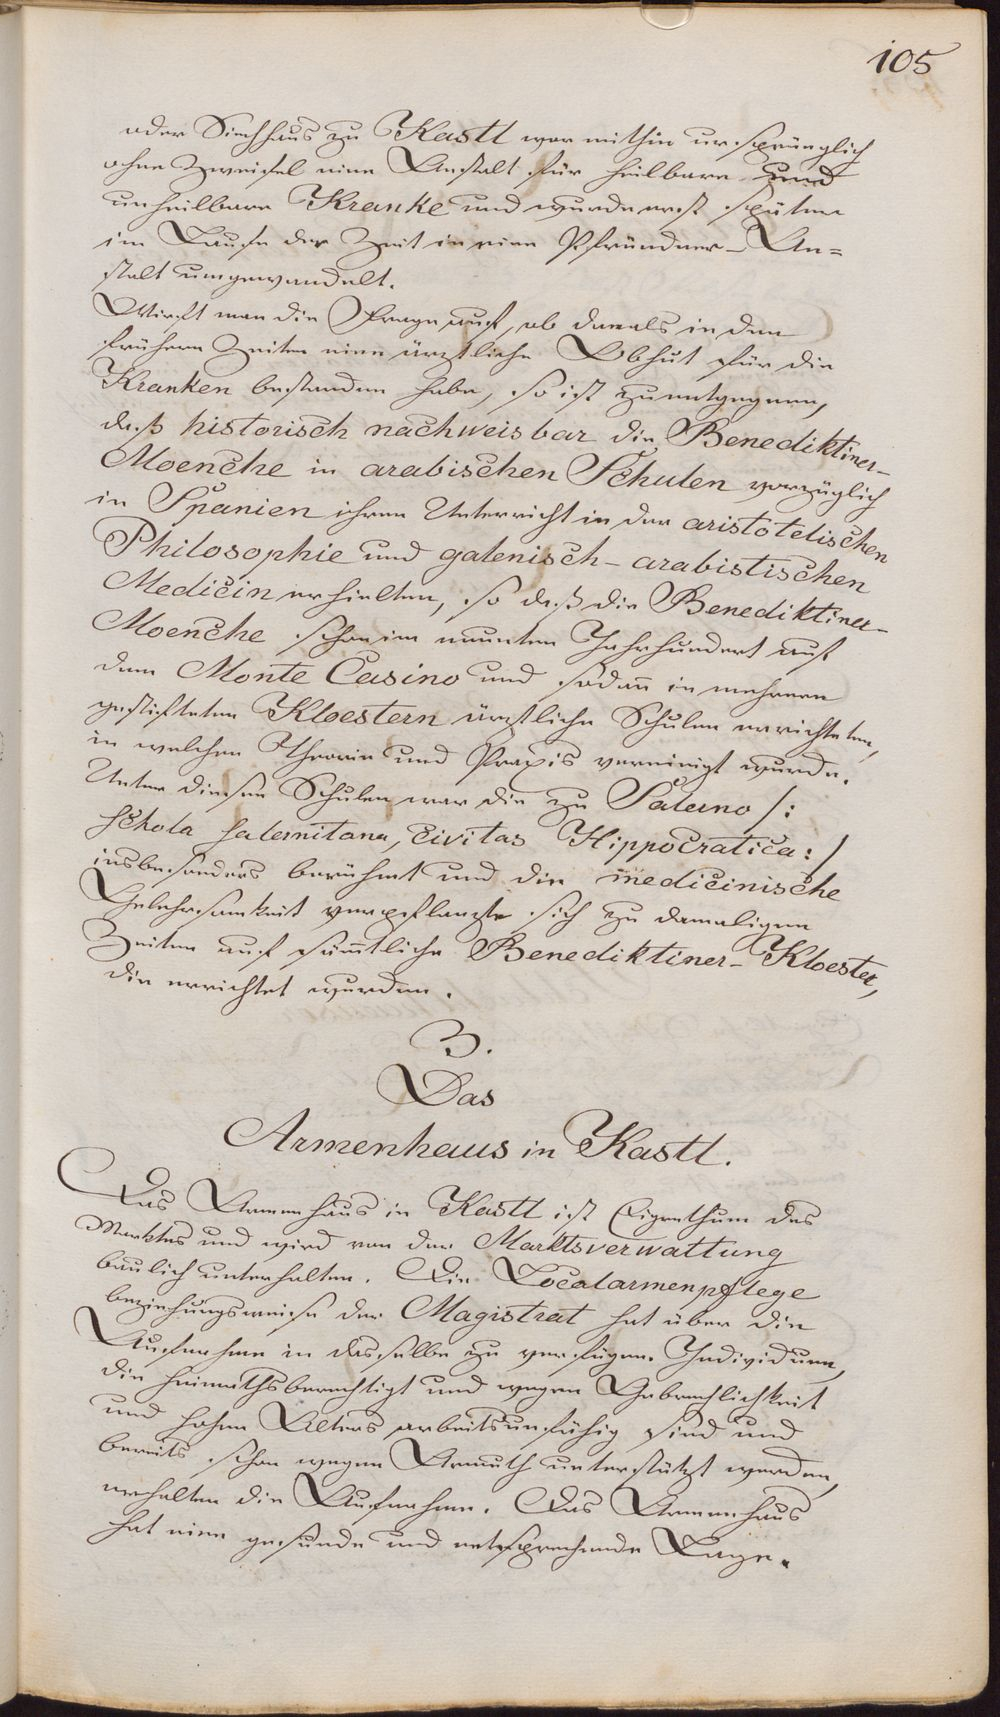 105
oder Siechhaus zu Kastl war mithin ursprünglich
ohne Zweifel eine Anstalt für heilbare und
unheilbare Kranke und wurde erst später
im Laufe der Zeit in eine Pfründner-An=
stalt umgewandelt.
Wirft man die Frage auf, ob damals in den
frühern Zeiten eine ärztliche Obhut für die
Kranken bestanden habe, so ist zu entgegnen,
daß historisch nachweisbar die Benediktiner-
Moenche in arabischen Schulen vorzüglich
in Spanien ihren Unterricht in der aristotelischen
Philosophie und galenisch-arabistischen
Medicin erhielten, so daß die Benediktiner-
Moenche schon im neunten Jahrhundert auf
dem Monte Casino und sodañ in mehreren
gestifteten Kloestern ärztliche Schulen errichteten,
in welchen Theorie und Praxis vereinigt wurde.
Unter diesen Schulen war die zu Salerno /:
schola salernitana, civitas Hippocratica:/
insbesonders berühmt und die medicinische
Gelehrsamkeit verpflanzte sich zu damaligen
Zeiten auf säm̅tliche Benediktiner-Kloester,
die errichtet wurden.
3.
Das
Armenhaus in Kastl.
Das Armenhaus in Kastl ist Eigenthum des
Marktes und wird von der Marktsverwaltung
baulich unterhalten. Die Localarmenpflege
beziehungsweise der Magistrat hat über die
Aufnahme in dasselbe zu verfügen. Individuen,
die heimathsberechtigt und wegen Gebrechlichkeit
und hohen Alters arbeitsunfähig sind und
bereits schon wegen Armuth unterstützt werden,
erhalten die Aufnahme. Das Armenhaus
hat eine gesunde und entsprechende Lage.